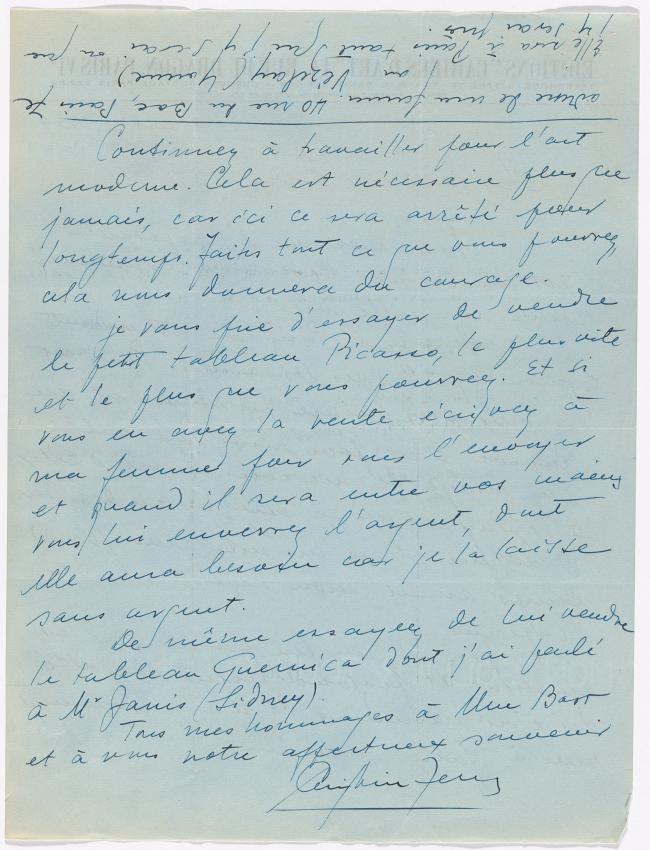 adresse de ma femme: 40 rue du Bac, Paris 7e
ou Vézelay (Yonne)
Elle sera à Paris tant que j'y serai ou que
j'y serai près.
Continuez à travailler pour l'art
moderne. Cela est nécessaire plus que
jamais, car ici ce sera arrêté pour
longtemps. Faites tout ce que vous pourrez
cela nous donnera du courage.
je vous prie d'essayer de vendre
le petit tableau Picasso, le plus vite
et le plus que vous pourrez. Et si
vous en avez la vente écrivez à
ma femme pour vous l'envoyer
et quand il sera entre vos mains
vous lui enverrez l'argent, dont
elle aura besoin car je la laisse
sans argent.
De même essayez de lui vendre
le tableau Guernica dont j'ai parlé
à Mr Janis (Sidney).
Tous mes hommages à Mme Barr
et à vous notre affectueux souvenir
Christian Zervos